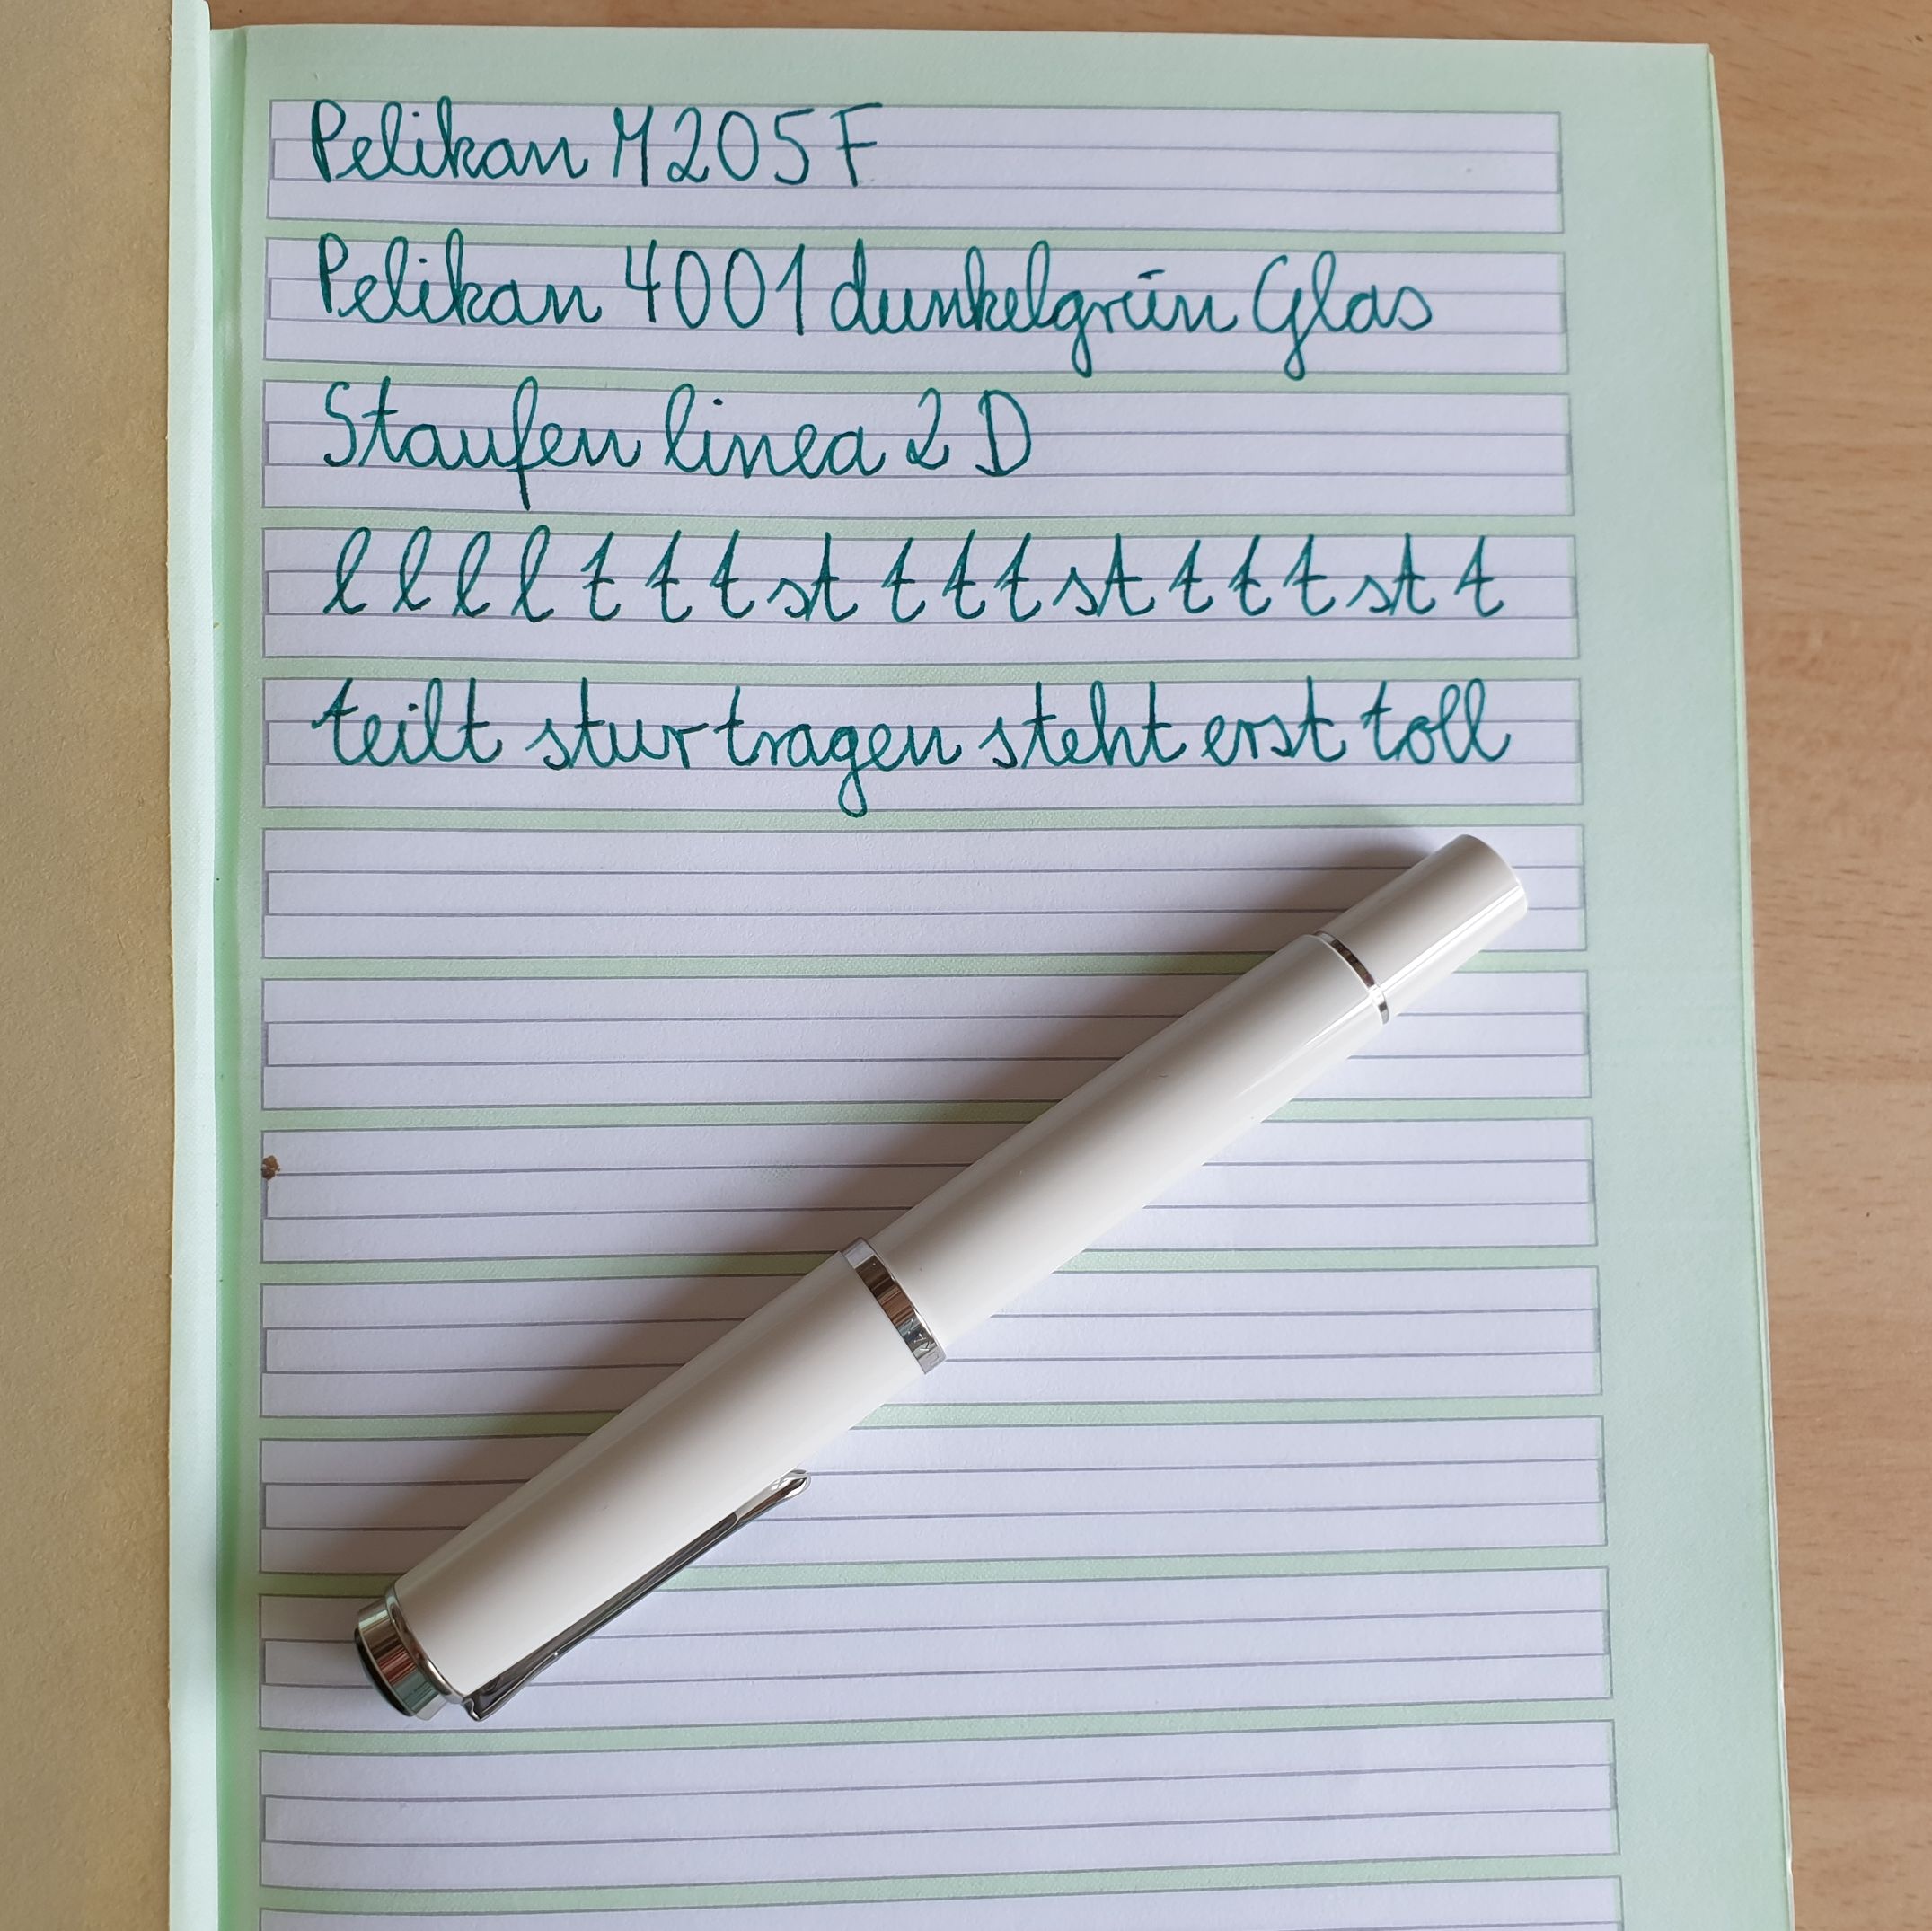 Pelikan M205 F
Pelikan 4001 dunkelgrün Glas
Staufen linea 2 D
l l l l t t t st t t t st t t t st t
teilt stur tragen steht erst toll